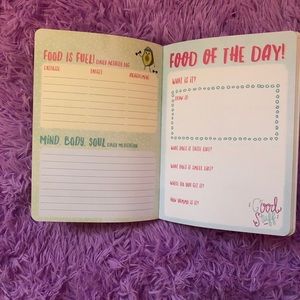 FOOD IS FUEL!
MIND, BODY, SOUL
FOOD OF THE DAY!
WHAT IS IT?
DRAW IT:
WHAT DOES IT TASTE LIKE?
WHAT DOES IT SMELL LIKE?
WHERE DID YOU GET IT?
HOW YUMMY IS IT?
Good
Stuff